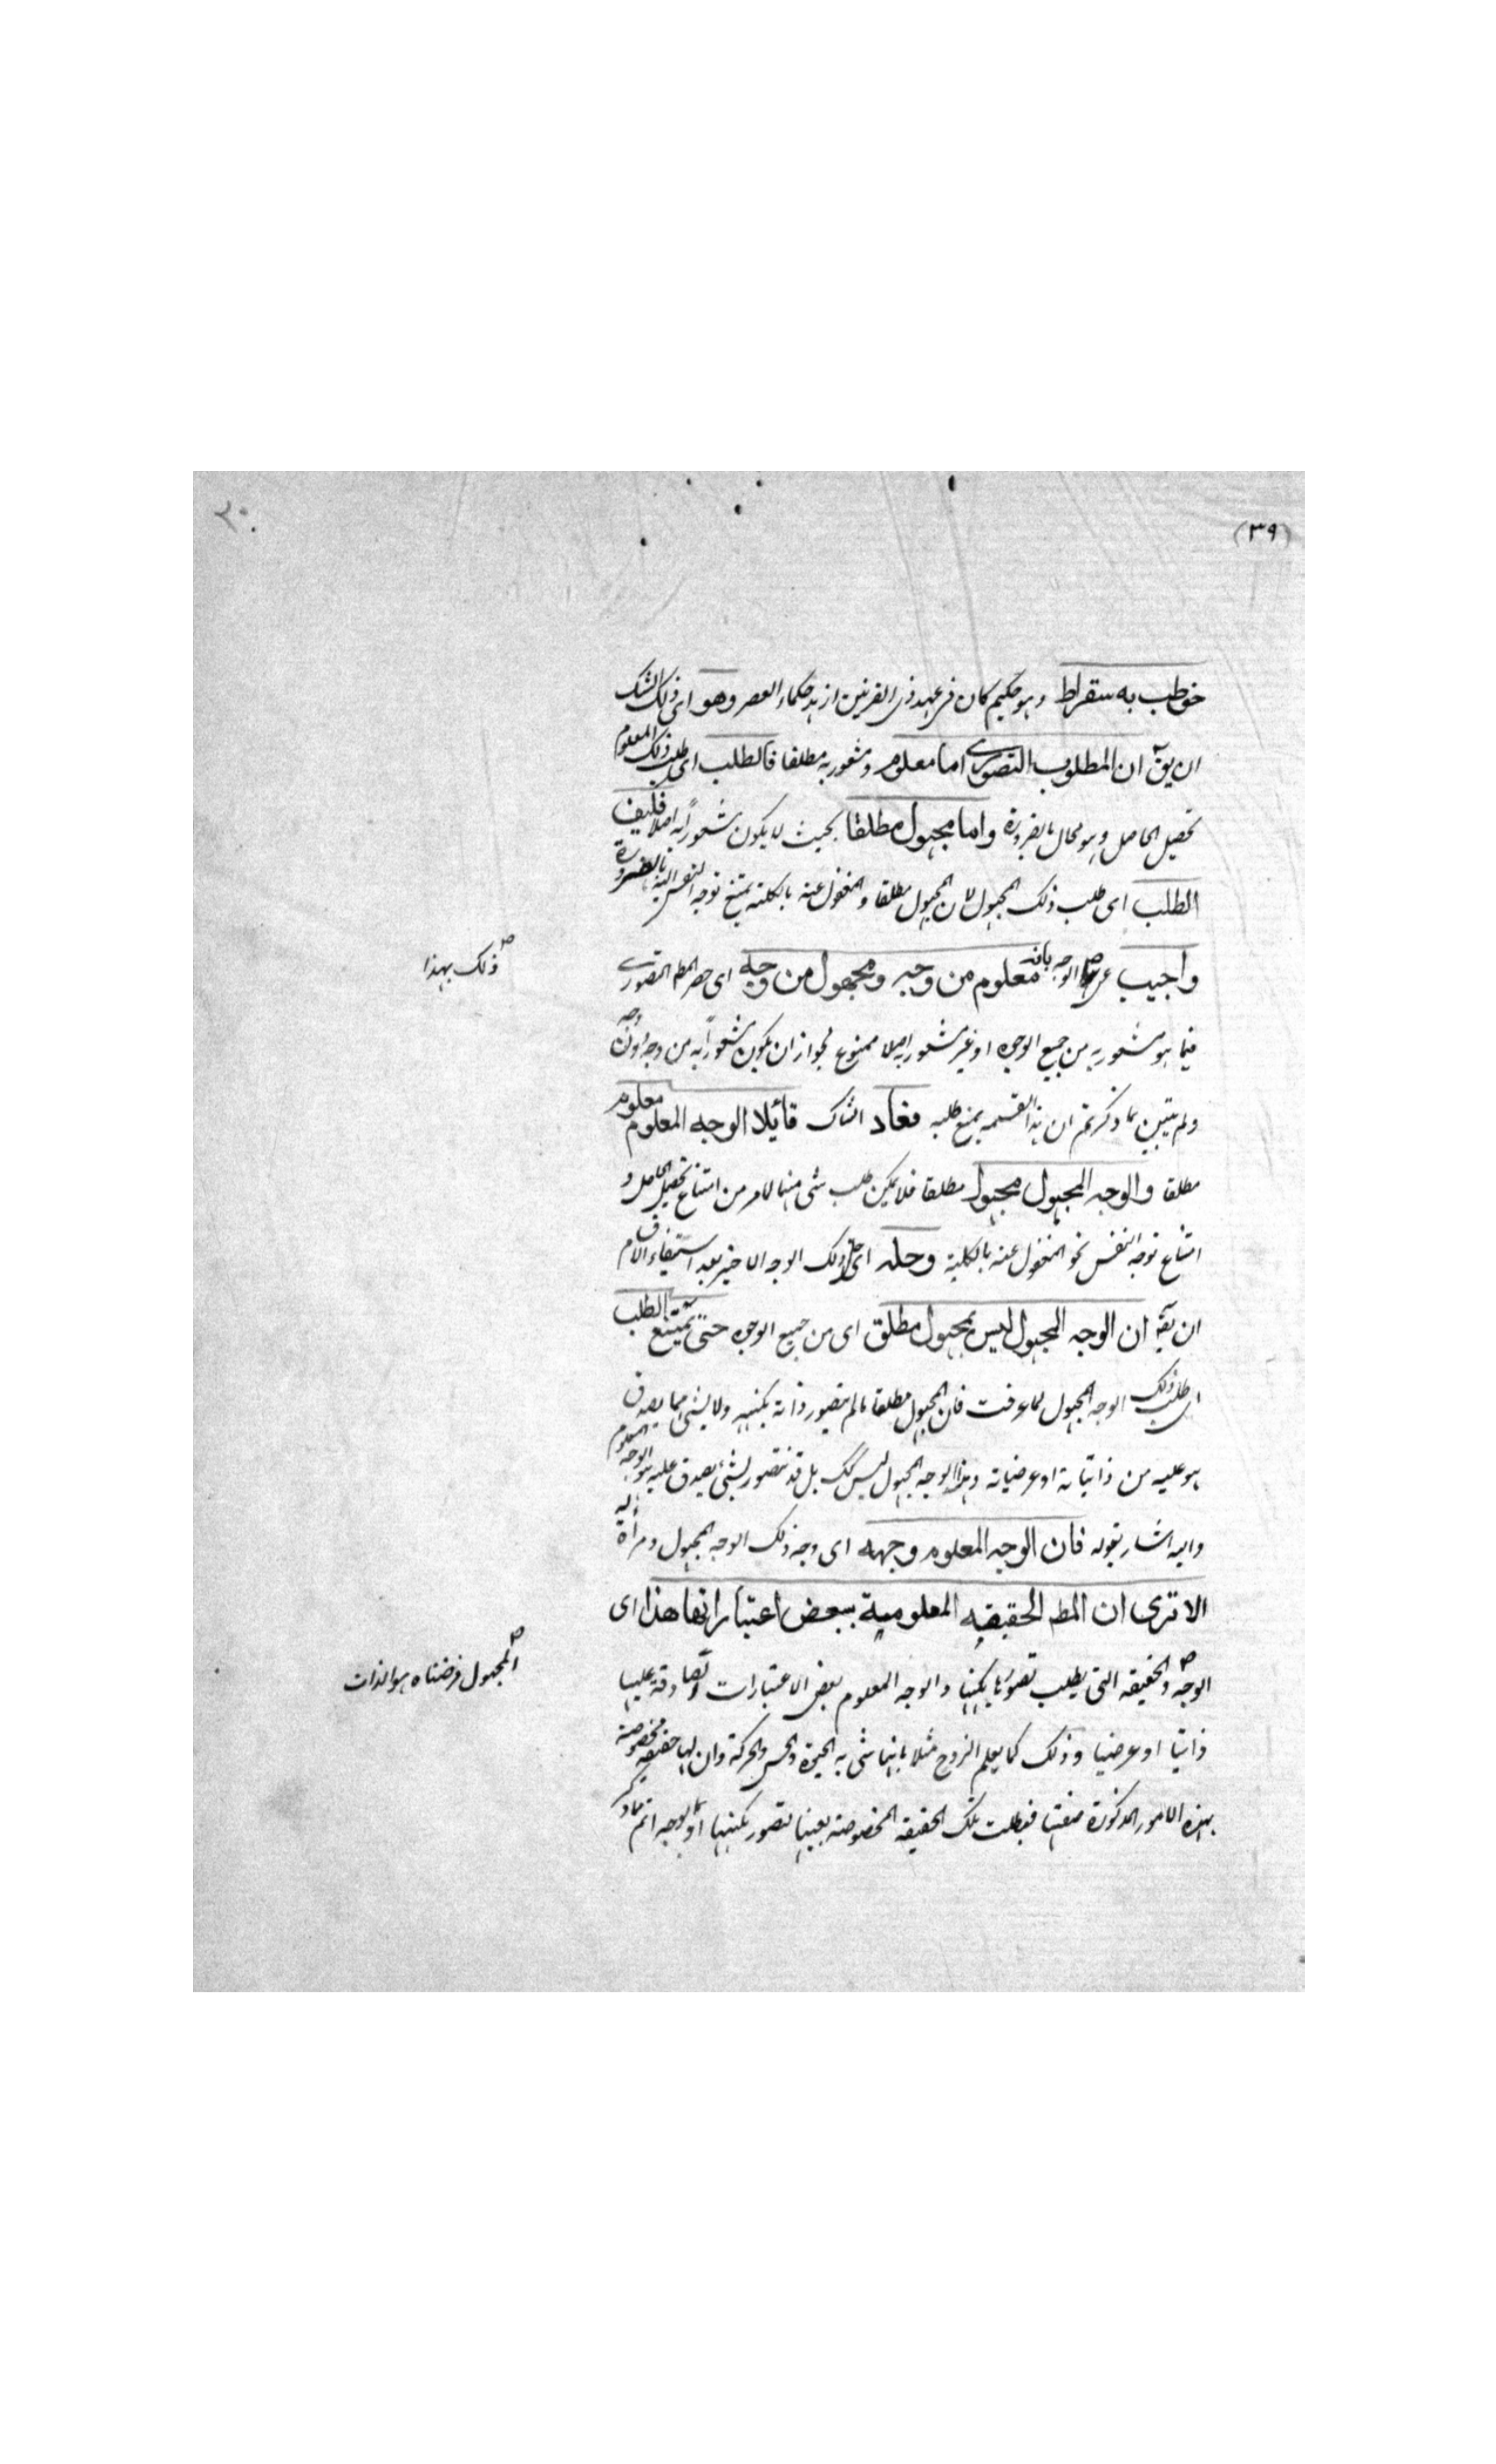 (٣٩)
٢٠
خوطب به سقراط وهو حكيم كان فى عهد ذى القرنين ازهد حكماء العصر وهو اى ذلك الشك
ان يقٓ ان المطلوب التصورى اما معلوم ومشعور به مطلقا فالطلب اى طلب ذلك المعلوم
تحصيل الحاصل وهو محال بالضرورة واما مجهول مطلقا بحيث لا يكون مشعوراً به اصلا فكيف
الطلب اى طلب ذلك المجهول لان المجهول مطلقا والمغفول عنه بالكلية يمتنع توجه النفس اليه بالضرورة
واجيب عن الوجه بانه معلوم من وجه ومجهول من وجه اى حصر المط التصورى
ذلك بهذا
فيما هو مشعور به من جميع الوجوه او غير مشعور به اصلا ممنوع لجواز ان يكون مشعوراً به من وجه دون وجه
ولم يتبين بما ذكرتم ان هذا القسم يمتنع طلبه فعاد الشاك قائلا الوجه المعلوم معلوم
مطلقا والوجه المجهول مجهول مطلقا فلا يمكن طلب شى منهما لامر من امتناع تحصيل الحاصل و
امتناع توجه النفس نحو المغفول عنه بالكلية وحله اى حل ذلك الوجه الاخير بعد استيفاء الاقام
ان يقٓ ان الوجه المجهول ليس بمجهول مطلق اى من جميع الوجوه حتى يمتنع الطلب
اى طلب ذلك الوجه المجهول لما عرفت فان المجهول مطلقا ما لم يتصور ذاته بكنهه ولا بشى مما يصدق
هو عليه من ذاتياته او عرضياته وهذا الوجه المجهول ليس كك بل قد تتصور بشئ يصدق عليه هو الوجه المعلوم
واليه اشار بقوله فان الوجه المعلوم وجهه اى وجه ذلك الوجه المجهول ومرآة اليه
الا ترى ان المط الحقيقه المعلومية ببعض اعتباراتها هذا اى
الوجه والحقيقه التى يطلب تصورها بكنهها والوجه المعلوم بعض الاعتبارات الصادقة عليها
المجهول فرضناه هو الذات
ذاتيا او عرضيا وذلك كما يعلم الزوج مثلا بانها شى به الحيوة والحس والحركة وان لها حقيقه مخصوصة
بهذه الامور المذكورة صفتها فيطلب تلك الحقيقه المخصوصة بعينها لتصور بكنهها او بوجه اتم مما ذكر